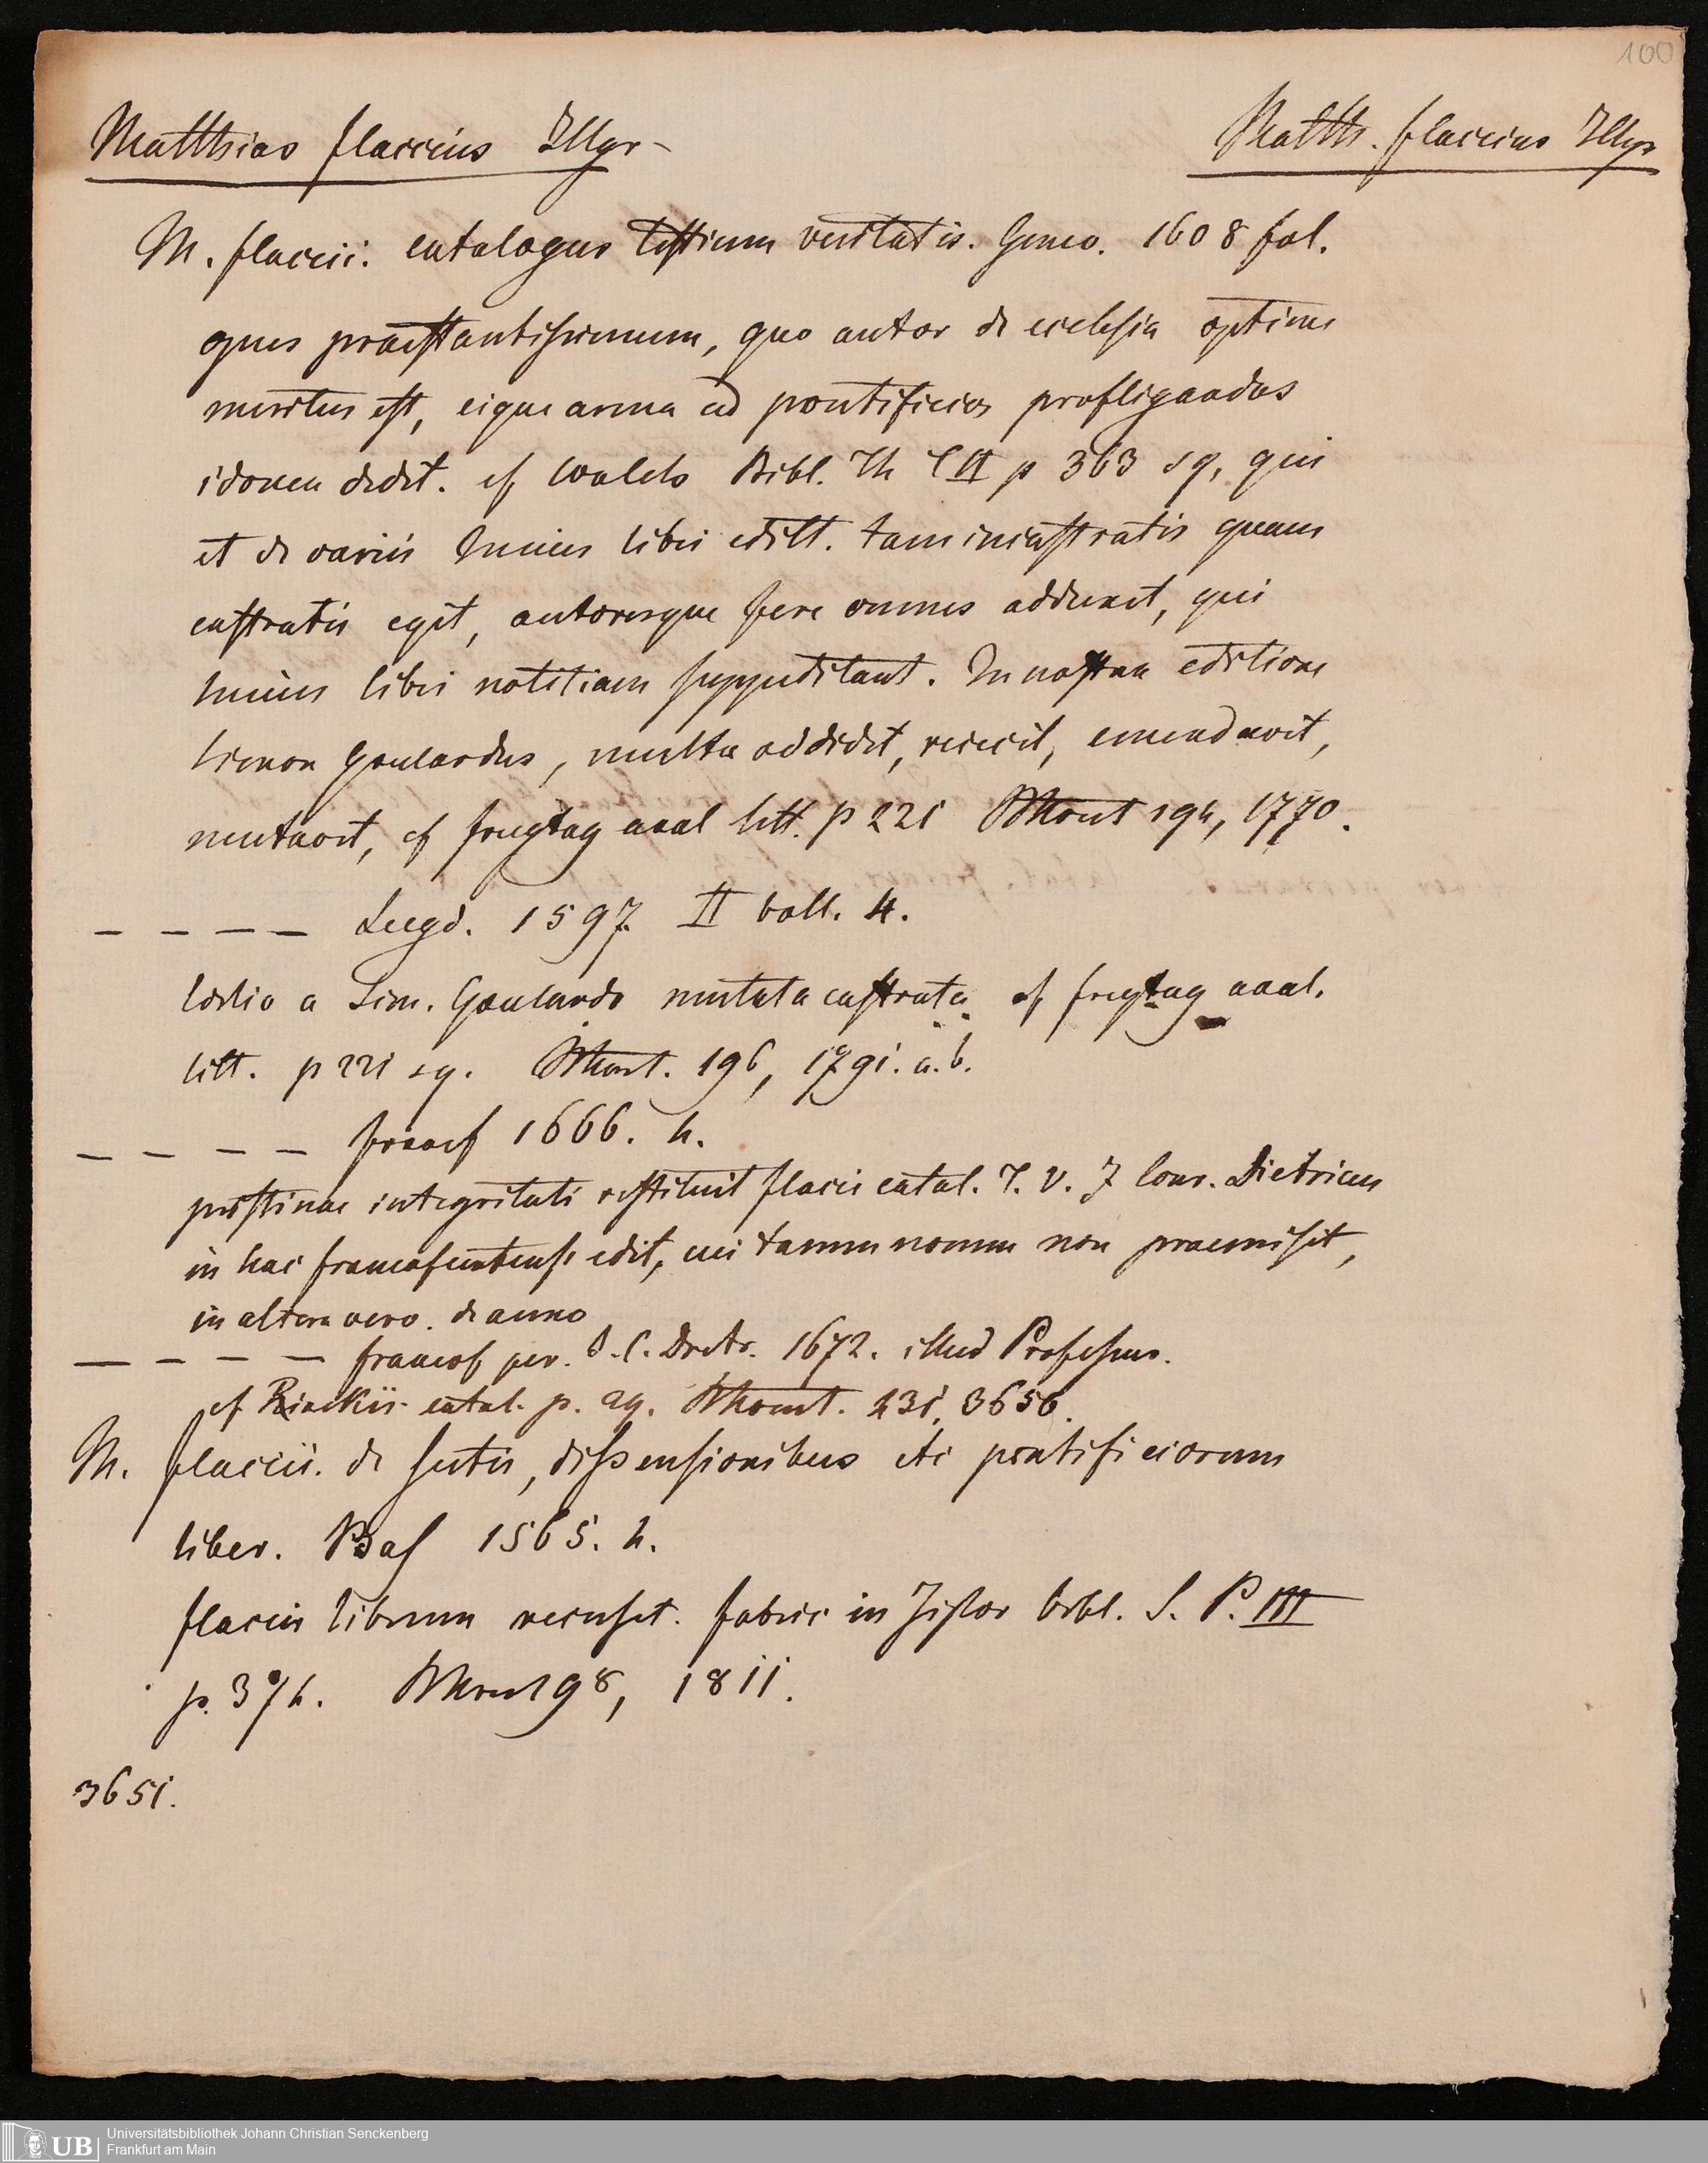 100
Matthias Flaccius Illyr-
Matth. Flaccius Illyr
M. Flaccii. catalogus testium veritatis. Genev. 1608 fol.
opus praestantissimum, quo autor de ecclesia optime
meritus est, eique arma ad pontificios profligandos
idonea dedit. cf Walch Bibl. Th T III p 363 sq, qui
et de variis huius libri edilt. tam incastratis quam
castratis egit, autoresque fere omnes adduxit, qui
huius libri notitiam suppeditant. In nostra editione
Simon Goulardus, multa addidit, reiecit, emendavit,
mutavit, cf Freytag anal litt. p 221 Mount 194, 1770.
_ _ _ _ Lugd. 1597. II voll. 4.
Editio a Sim. Goulardo mutata castrata cf Freytag anal.
litt. p 221 sq. Mount. 196, 1791. a. b.
_ _ _ _ Francf 1666. 4.
pristinae integritati restituit Flacii catal. T. V. J Conr. Dietricus
in hac Francofurtensi edit, cui tamen nomen non praemisit,
in altera vero. de anno
_ _ _ _ Francof per. J. C. Dietr. 1672. illud Professus.
cf Rinckii catal. p. 29. Mount. 231, 3656.
M. Flaccii. de sectis, dissensionibus etc pontificiorum
liber. Bas 1565. 4.
Flacii librum recuset. Fabric in Histor bibl. S. P. III
p. 374. Mount 198, 1811.
3651.
Universitätsbibliothek Johann Christian Senckenberg
Frankfurt am Main
UB